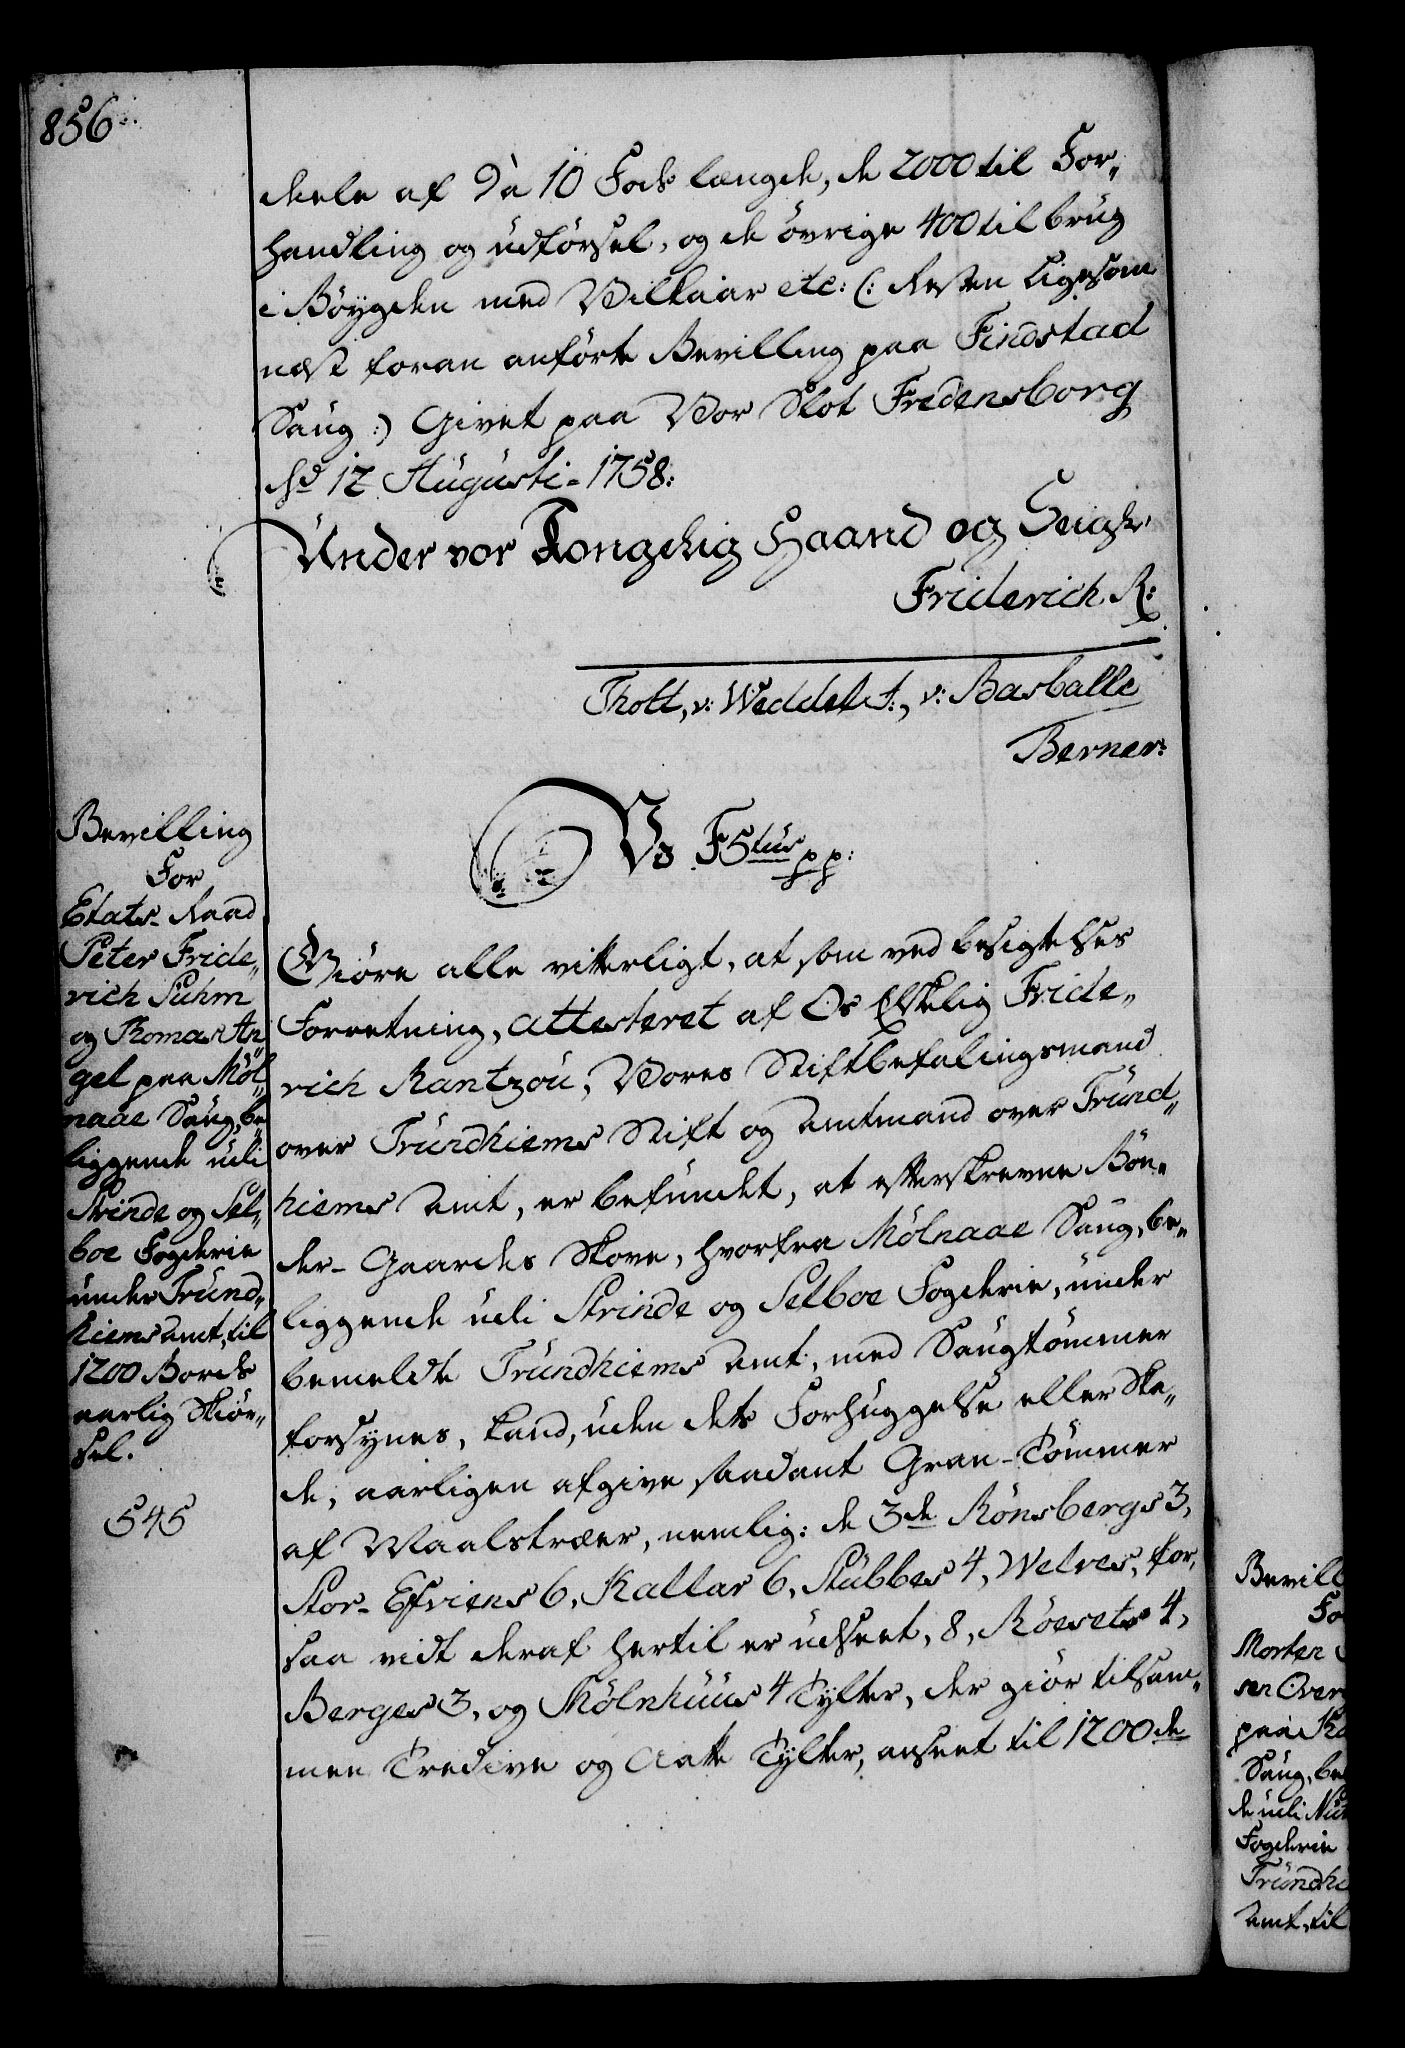 856.
deele af 9 à 10 Fods længde, de 2000 til For„
handling og udførsel, og de øvrige 400 til brug
i Bøygden med Vilkaar etc: (: Resten ligesom
næst foran anførte Bevilling paa Findstad
Saug :) Givet paa Vor Slot Fredensborg
hd 12 Augusti - 1758:
Under vor Kongelig Haand og Seigl.
Friderich R:
Thott, v: Weddel J:, v: Basballe
Berner:
Bevilling
For
Etats-Raad
Peter Fride„
rich Suhm
og Thomas An„
gel paa Møl„
naae Saug, be„
liggende udi
Strinde og Sel„
boe Fogderie
under Trund„
hiems Amt, til
1200 Bords
aarlig Skiør„
sel.
545
Vo F5tus pp:
Giøre alle vitterligt, at som ved besigtelses
Forretning, attesteret af Os Elskelig Fride„
rich Rantzou, Vores Stiftbefalingsmand
over Trundhiems Stift og Amtmand over Trund„
hiems Amt, er befundet, at efterskrevne Bøn„
der-Gaardes Skove, hvorfra Mølnaae Saug, be„
liggende udi Strinde og Selboe Fogderie, under
bemeldte Trundhiems Amt, med Saugtømmer
forsynes, kand, uden dets Forhuggelse eller Ska„
de, aarligen afgive saadant Gran-Tømmer
af Maalstræer, nemlig: de 3de Rønsbergs 3,
Stor-Efviens 6, Kallar 6, Stubbes 4, Welves, for,
saa vidt deraf hertil er udseet, 8, Røesets 4,
Berges 3, og Mølnhuus 4 Tylter, der giør tilsam„
men Tredive og Aatte Tylter, anseet til 1200de
Bevill
Fo
Morten
sen Over
paa
Saug, be
de udi
Fogderie
Trundhi
Amt, til